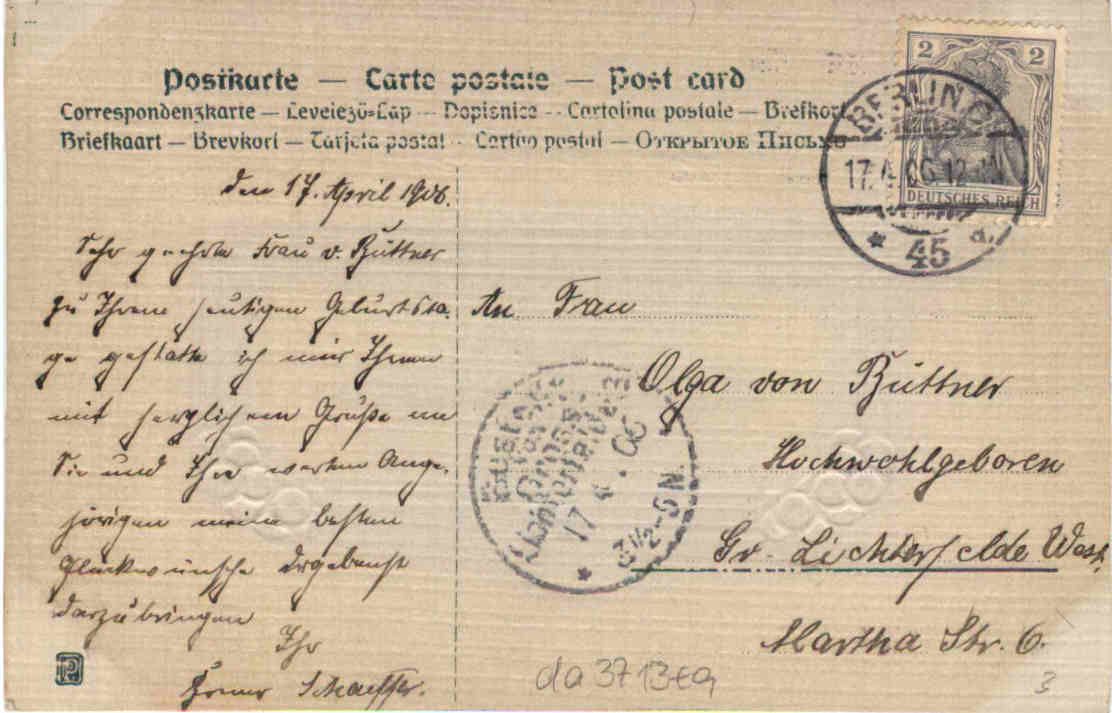 Postkarte — Carte postale — Post card
Correspondenzkarte — Levelező-Lap — Dopisnice — Cartolina postale — Brefkort
Briefkaart — Brevkort — Tarjeta postal — Cartão postal — Открытое Письмо
2 2
DEUTSCHES REICH
BERLIN
17.4.06.12-1N
* 45 a.
den 17. April 1906.
Sehr geehrte Frau v. Büttner
zu Ihrem heutigen Geburtsta-
ge gestatte ich mir Ihnen
mit herzlichem Gruße an
Sie und Ihre werten Ange-
hörigen meine besten
Glückwünsche ergebenst
darzubringen
Ihr
Schaeffer.
An Frau
Olga von Büttner
Hochwohlgeboren
Gr. Lichterfelde West.
Martha Str. 6.
Bestellt
vom
Postamte
17 4.06
3½-5N.
da3713eg
3